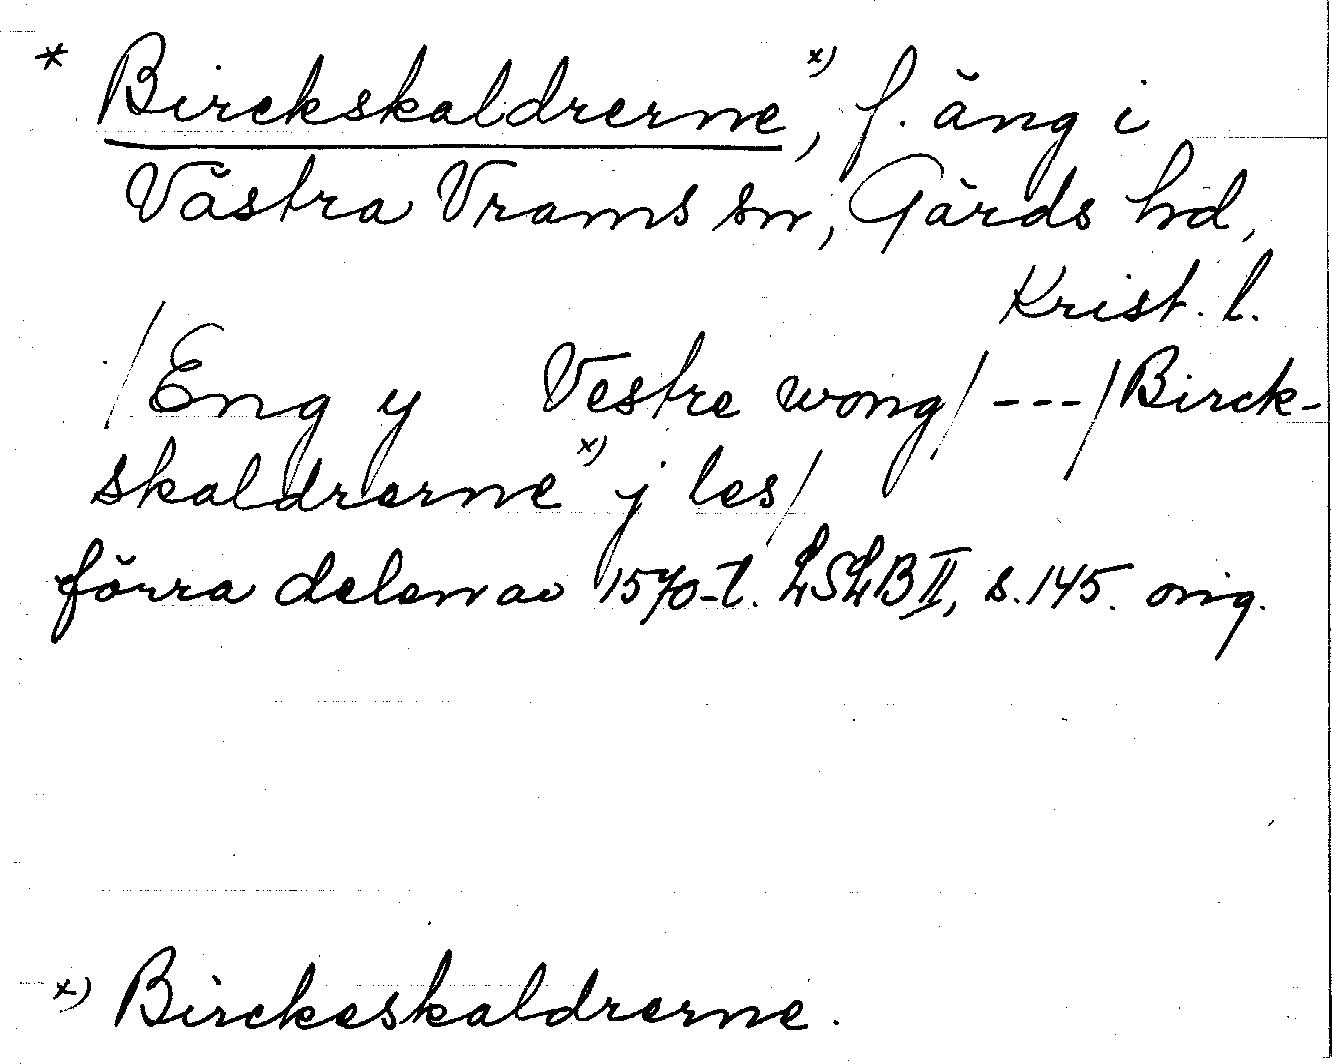 * Birckskaldrerne x), f. äng i
Västra Vrams sn, Gärds hd,
Krist. l.
/Eng y Vestre wong/ --- /Birck-
skaldrerne x) j les/
förra delen av 1570-t. LSLB II, s. 145. orig.
x) Birckeskaldrerne.